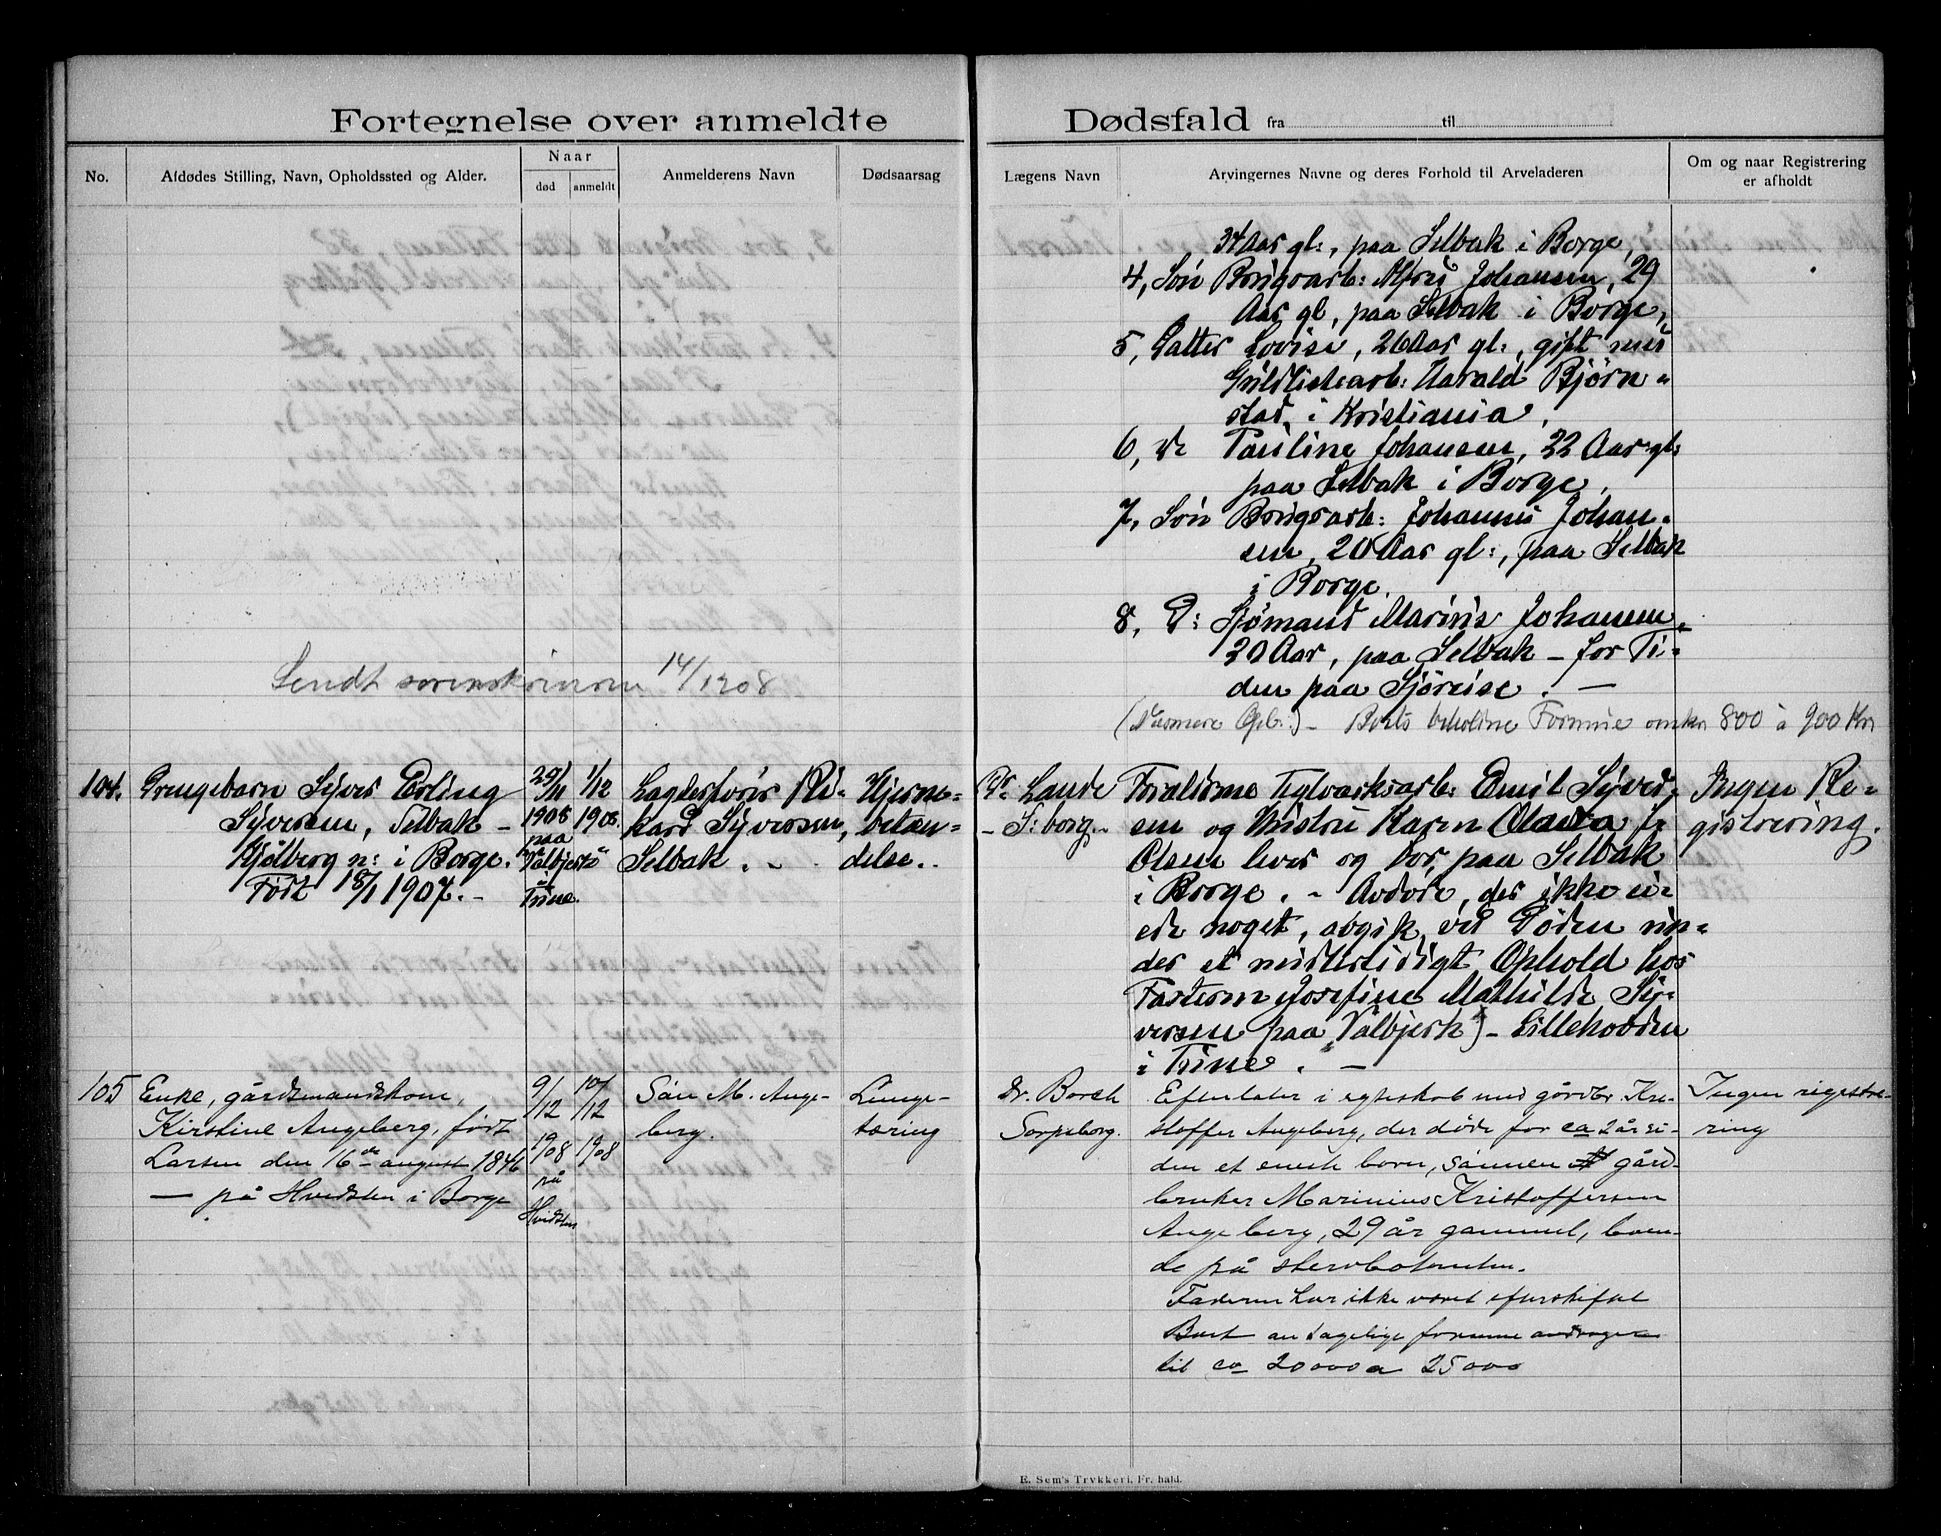 Fortegnelse over anmeldte Dødsfald fra til
No.
Afdødes Stilling, Navn, Opholdssted og Alder.
Naar
død
anmeldt
Anmelderens Navn
Dødsaarsag
Lægens Navn
Arvingernes Navne og deres Forhold til Arveladeren
Om og naar Registrering
er afholdt
Aar gl:, paa Selbak i Borge,
4, Søn Brugsarb: Alfred Johansen, 29
Aar gl, paa Selbak i Borge,
5, Datter Lovise, 26 Aar gl:, gift med
arb: Harald Bjørn-
stad i Kristiania.
6, do Pauline Johansen, 22 Aar gl:
paa Selbak i Borge.
7, Søn Brugsarb: Johannes Johan-
sen, 20 Aar gl:, paa Selbak
i Borge.
8, D: Sjømand Marius Johansen,
20 Aar, paa Selbak – for Ti-
den paa Sjøreise. –
Sendt sorenskriveren 14/1 1908
(Nærmere Opl:) – Boets beholdne Formue omkr 800 à 900 Kr
104.
Drengebarn Syver Erling
Syversen, Selbak –
Kjølberg n: i Borge.
Født 18/1 1907. –
29/11
1908
paa
Valbjerk
Tune.
1/12
1908.
Faglesføris Ri-
kard Syversen,
Selbak.
Hjerne-
betæn-
delse.
Dr. Lande
– S:borg. –
Forældrene Teglværksarb: Emil Syver-
sen og Hustru Karen Olava f.
Olsen lever og bor paa Selbak
i Borge. – Avdøde, der ikke ei-
ede noget, avgik ved Døden un-
der et midlertidigt Ophold hos
Fasteren Josefine Mathilde Sy-
versen paa Valbjerk) – Lillehovden
i Tune. –
Ingen Re-
gistrering.
105
Enke, gårdmandskone,
Kirstine Angeberg, født
Larsen den 16de august 1846
– på Hvidsten i Borge
9/12
1908
på
Hvidsten
10/12
1908
Søn M. Ange-
berg.
Lunge-
tæring
Dr. Borch
Sarpsborg.
Efterlater i egteskab med gårdbr Kri-
stoffer Angeberg, der døde for ca 2 år si-
den et eneste barn, sønnen gård-
bruker Marinius Kristoffersen
Angeberg, 29 år gammel, boen-
de på stervbotomten.
Faderen har ikke været efterskiftet
Boets antagelige formue andrager
til ca 20000 a 25000
Ingen registre-
ring
E. Sem's Trykkeri, Fr. hald.